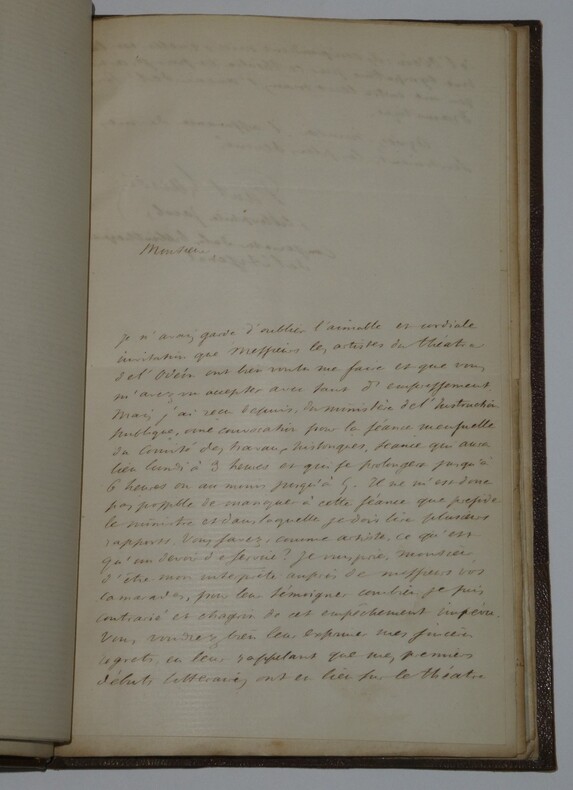 Monsieur
Je n'avais garde d'oublier l'aimable et cordiale
invitation que Messieurs les artistes du théâtre
de l'Odéon ont bien voulu me faire et que vous
m'avez vu accepter avec tant d'empressement
Mais j'ai reçu depuis, du ministère de l'Instruction
publique, une convocation pour la séance mensuelle
du Comité des travaux historiques, séance qui aura
lieu lundi à 3 heures et qui se prolongera jusqu'à
6 heures ou au moins jusqu'à 5. Il ne m'est donc
pas possible de manquer à cette séance que préside
le ministre et dans laquelle je dois lire plusieurs
rapports. Vous savez, comme artiste, ce qu'est
qu'un devoir d'office? Je vous prie, monsieur
d'être mon interprète auprès de messieurs vos
camarades, pour leur témoigner combien je suis
contrarié et chagrin de cet empêchement imprévu.
Vous voudrez bien leur exprimer mes sincères
regrets, en leur rappelant que mes premiers
débuts littéraires ont eu lieu sur le théâtre